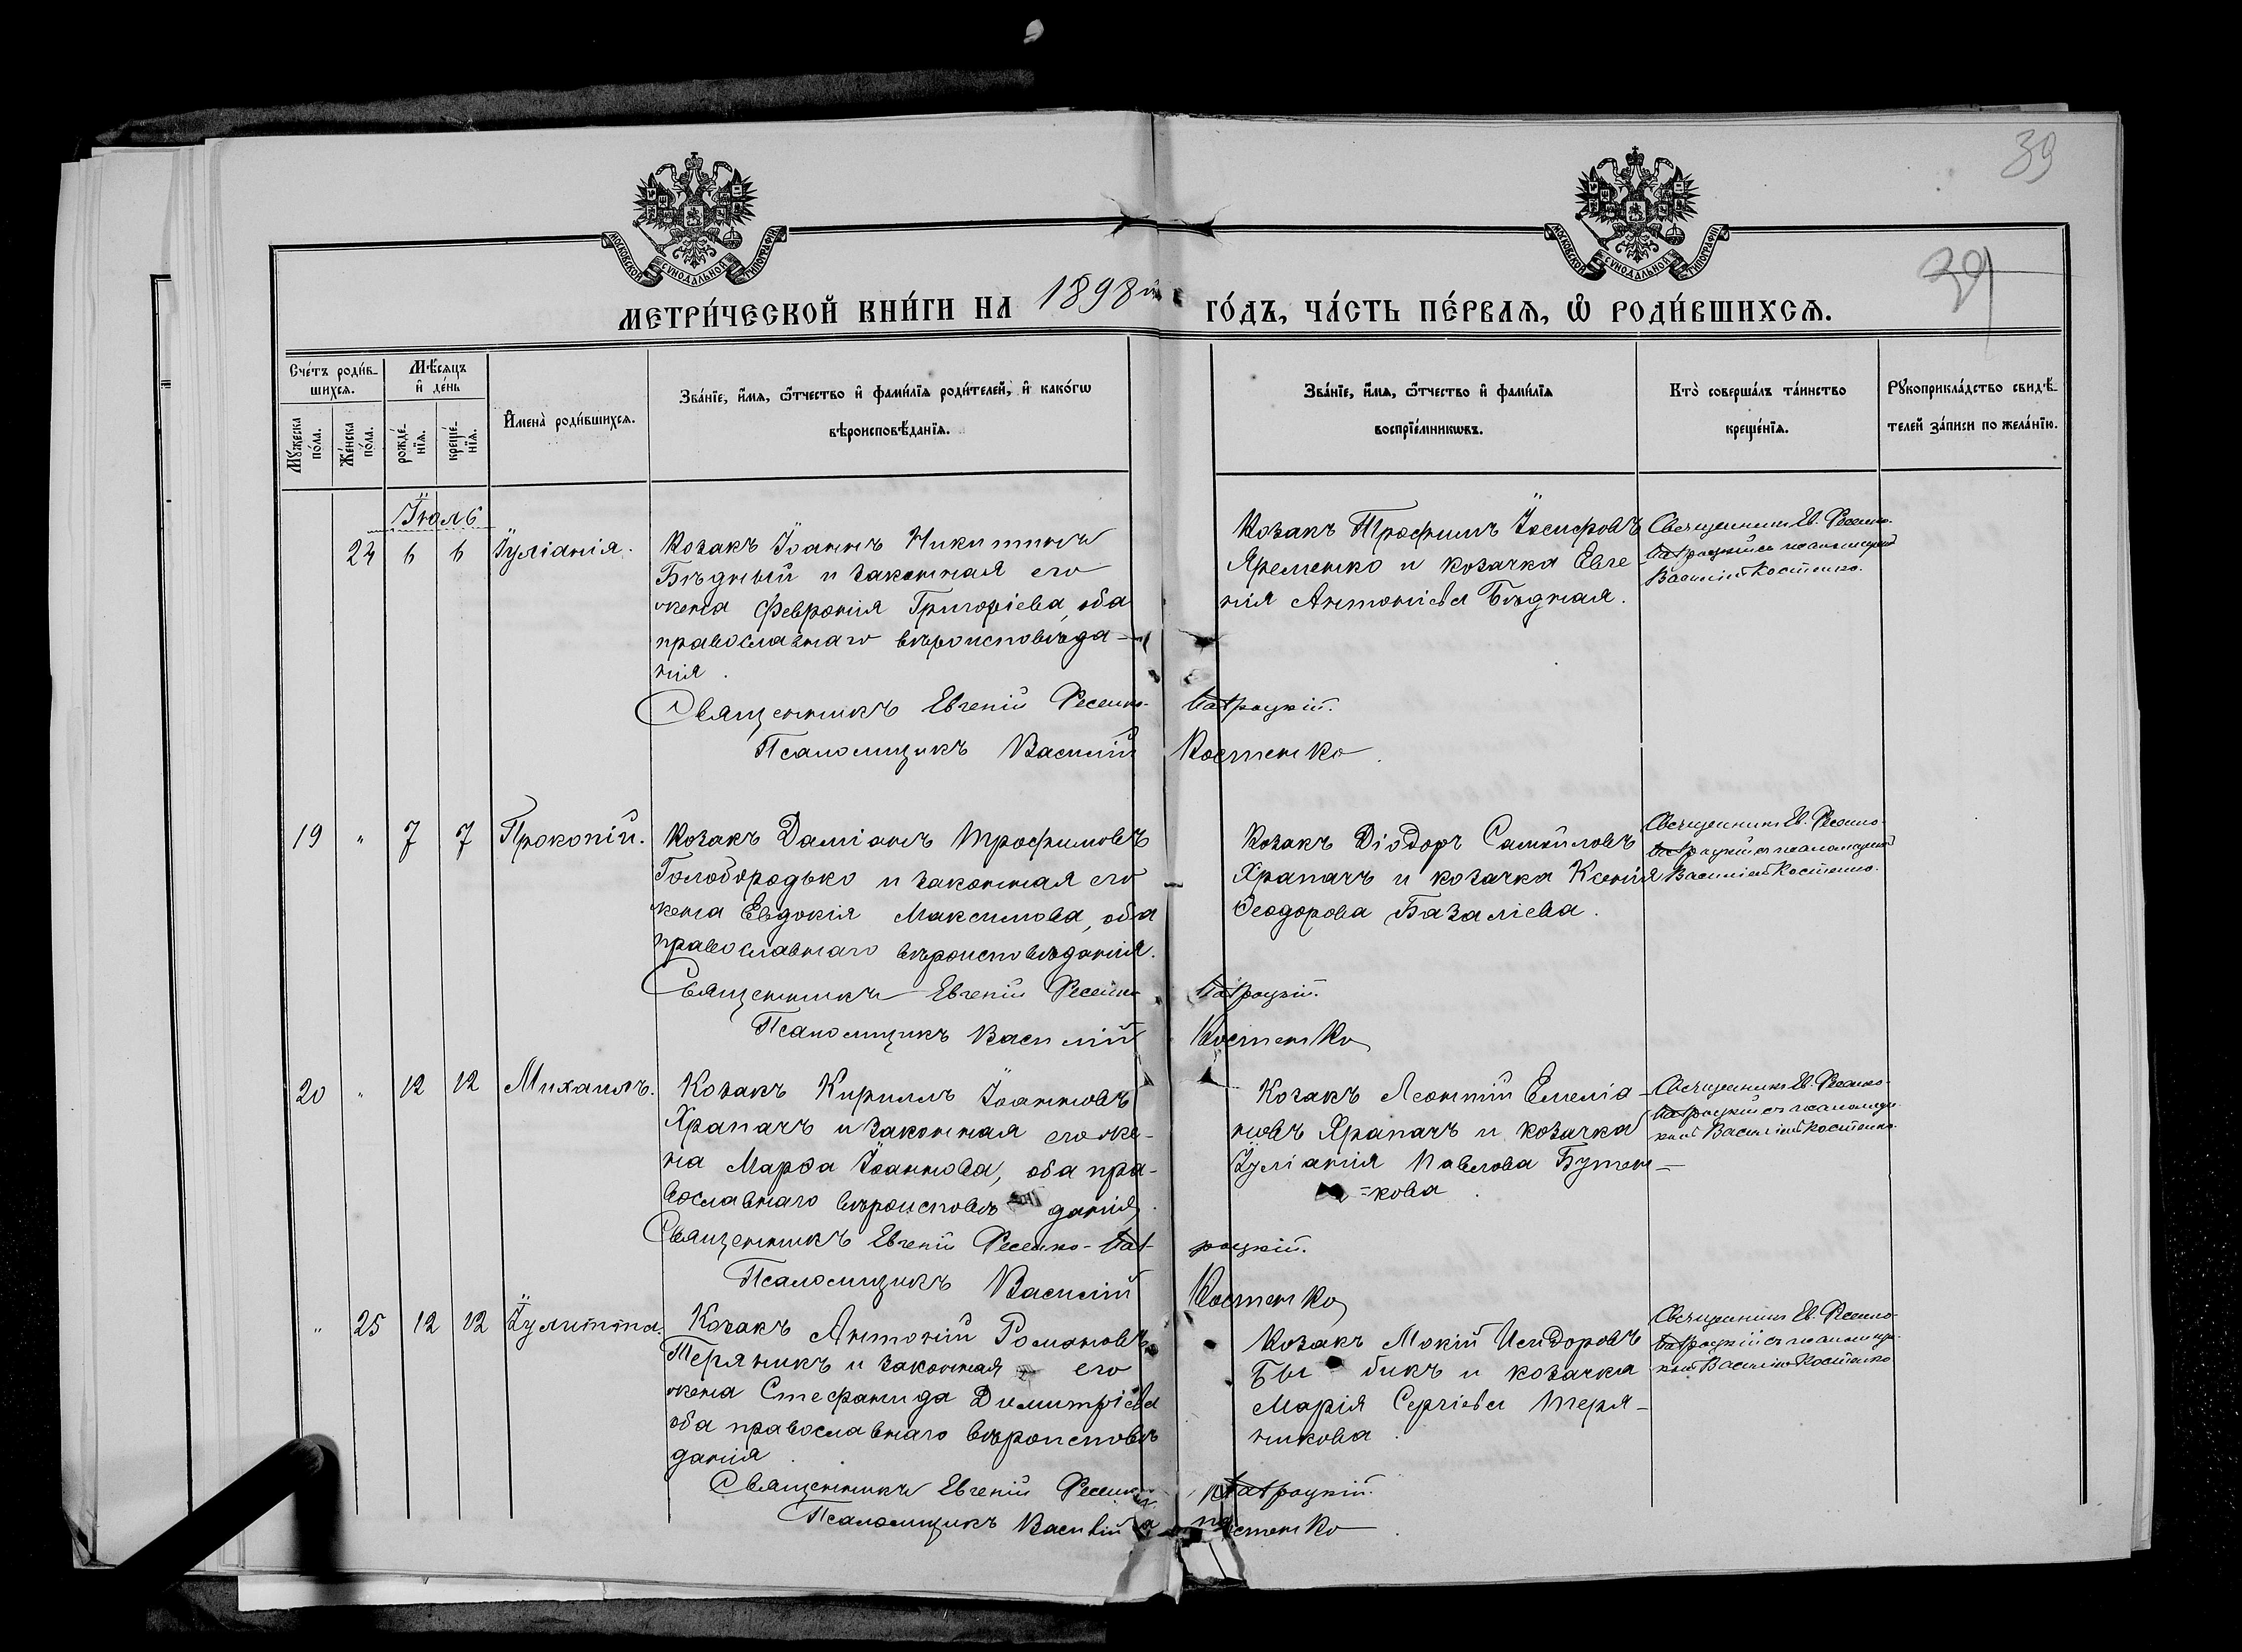 39
39
МОСКОВСКОЙ СѴНОДАЛЬНОЙ ТИПОГРАФІИ
МОСКОВСКОЙ СѴНОДАЛЬНОЙ ТИПОГРАФІИ
МЕТРИ́ЧЕСКОЙ КНИ́ГИ НА 1898й ГО́ДЪ, ЧА́СТЬ ПЕ́РВАѦ, Ѡ҆ РОДИ́ВШИХСѦ.
Сче́тъ роди́в-
шихся.
Мѣ́сяцъ
и҆ де́нь
Мꙋ́жеска
по́ла.
Же́нска
по́ла.
рожде́-
нїя.
креще́-
нїя.
И҆мена̀ роди́вшихся.
Зва́нїе, и҆́мя, ѻ҆́тчество и҆ фамі́лїя роди́телей, и҆ како́гѡ
вѣроисповѣ́данїя.
Зва́нїе, и҆́мя, ѻ҆́тчество и҆ фамі́лїя
воспрїе́мникѡвъ.
Кто̀ соверша́лъ та́инство
креще́нїя.
Рꙋкоприкла́дство свидѣ́-
телей за́писи по жела́нїю.
Іюль
24 6 6 Іуліанія.
Козакъ Іоаннъ Никитинъ
Бѣдный и законная его
жена Февронія Григоріева, оба
православнаго вѣроисповѣда-
нія.
Козакъ Трофимъ Іосифовъ
Яременко и козачка Евге
нія Антоніева Бѣдная.
Священникъ Ев.
псаломщик
Василій Костенко.
Священникъ Евгеній
Псаломщикъ Василій Костенко.
19 " 7 7 Прокопій.
Козакъ Даміанъ Трофимовъ
Голобородько и законная его
жена Евдокія Максимова, оба
православнаго вѣроисповѣданія.
Козакъ Діодоръ Самойловъ
Храпачъ и козачка Ксенія
Ѳеодорова Базаліева.
Священникъ Ев.
псаломщик
Василій Костенко.
Священникъ Евгеній
Псаломщикъ Василій Костенко
20 " 12 12 Михаилъ.
Козакъ Кириллъ Іоанновъ
Храпачъ и законная его же-
на Марѳа Іоаннова, оба пра-
вославнаго вѣроисповѣданія.
Козакъ Леонтій Емеліа-
новъ Храпачъ и козачка
Іуліанія Павлова Бутен-
=кова.
Священникъ Ев.
псаломщи-
комъ Василіем Костенко.
Священникъ Евгеній
Псаломщикъ Василій Костенко
" 25 12 12 Іулитта.
Козакъ Антоній Романовъ
Теряникъ и законная его
жена Стефанида Димитріева
оба православнаго вѣроисповѣ
данія
Козакъ Мокій Исидоровъ
Бы бикъ и козачка
Марія Сергіева Теря-
никова.
Священникъ Ев.
псаломщи-
комъ Василіем Костенко
Священникъ Евгеній
Псаломщикъ Василій Костенко.